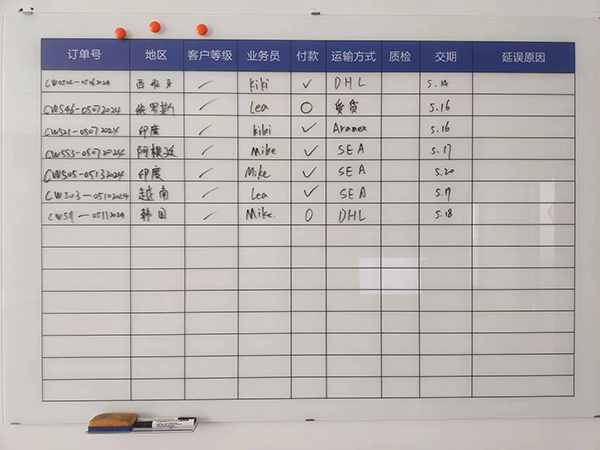 订单号 地区 客户等级 业务员 付款 运输方式 质检 交期 延误原因
CW0502-05062024 西班牙 ✓ kiki ✓ DHL 5.14
CW546-05072024 俄罗斯 ✓ Lea O 5.16
CW521-05072024 印度 ✓ kiki ✓ Aramex 5.16
CW553-05072024 阿根廷 ✓ Mike ✓ SEA 5.17
CW505-05132024 印度 ✓ Mike ✓ SEA 5.20
CW503-05102024 越南 ✓ Lea ✓ SEA 5.17
CW511-05112024 韩国 ✓ Mike O DHL 5.18